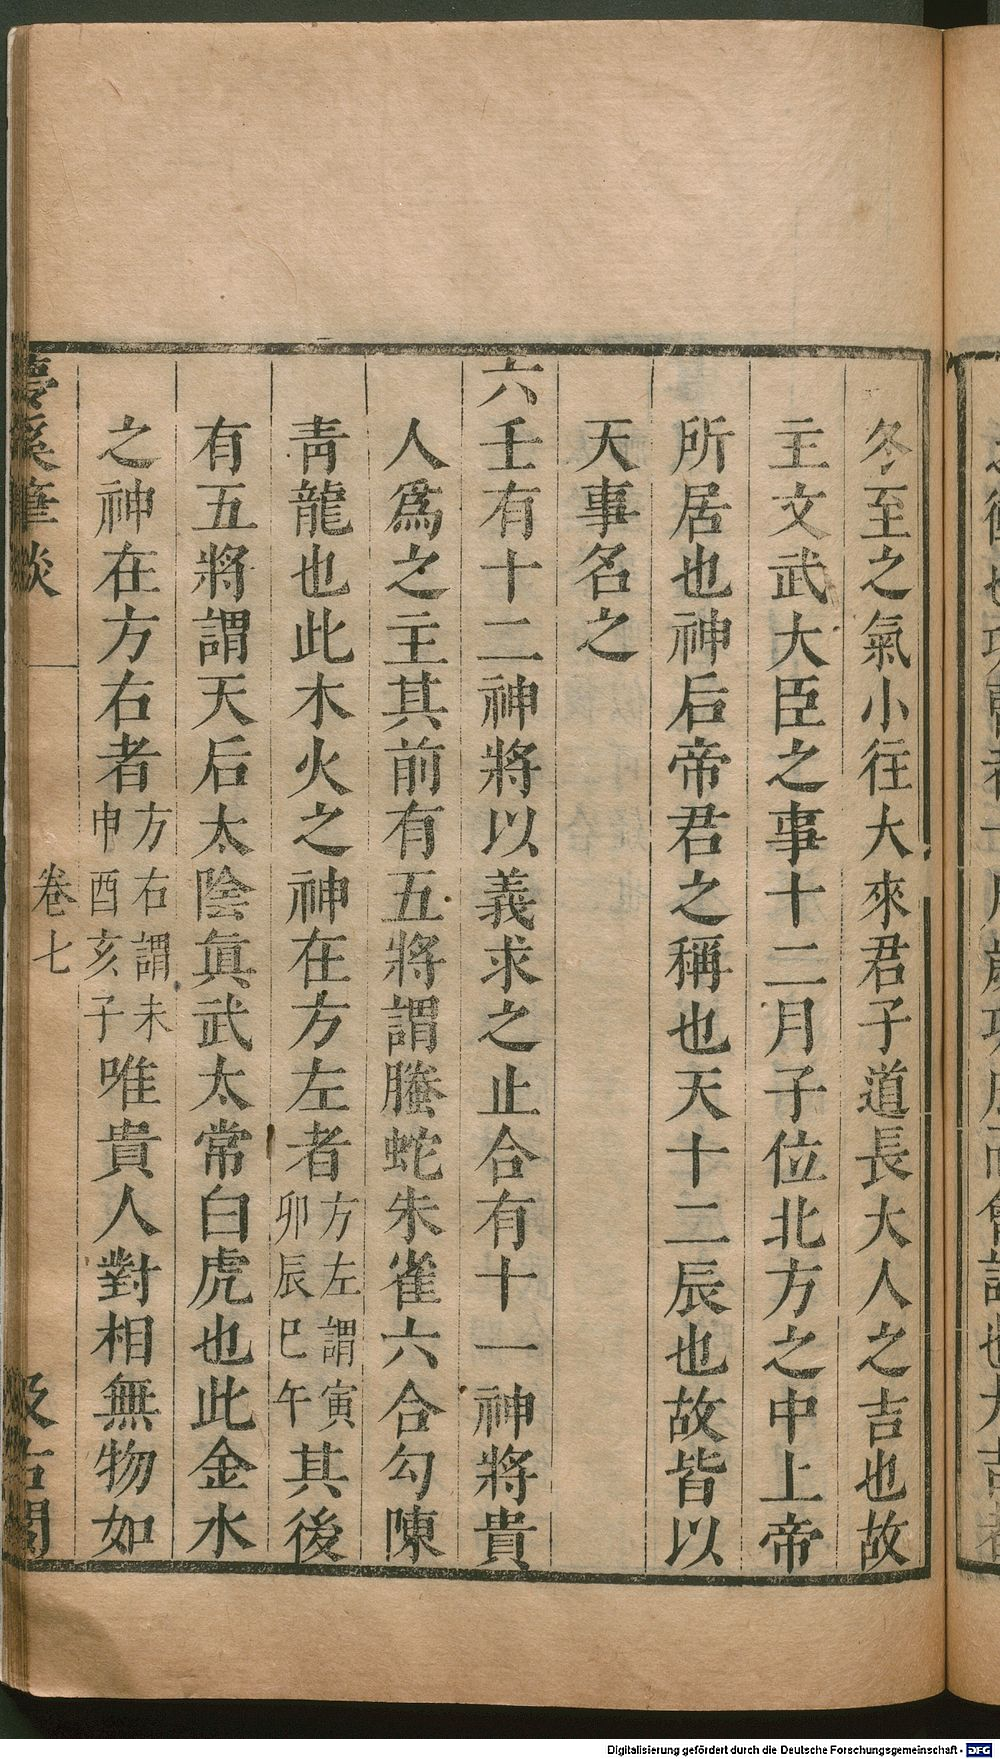 冬至之氣小往大來君子道長大人之吉也故
主文武大臣之事十二月子位北方之中上帝
所居也神后帝君之稱也天十二辰也故皆以
天事名之
六壬有十二神將以義求之止合有十一神將貴
人爲之主其前有五將謂騰蛇朱雀六合勾陳
靑龍也此木火之神在方左者方左謂寅卯辰巳午其後
有五將謂天后太陰眞武太常白虎也此金水
之神在方右者方右謂未申酉亥子唯貴人對相無物如
夢溪筆談
卷七
汲古閣
Digitalisierung gefördert durch die Deutsche Forschungsgemeinschaft - DFG